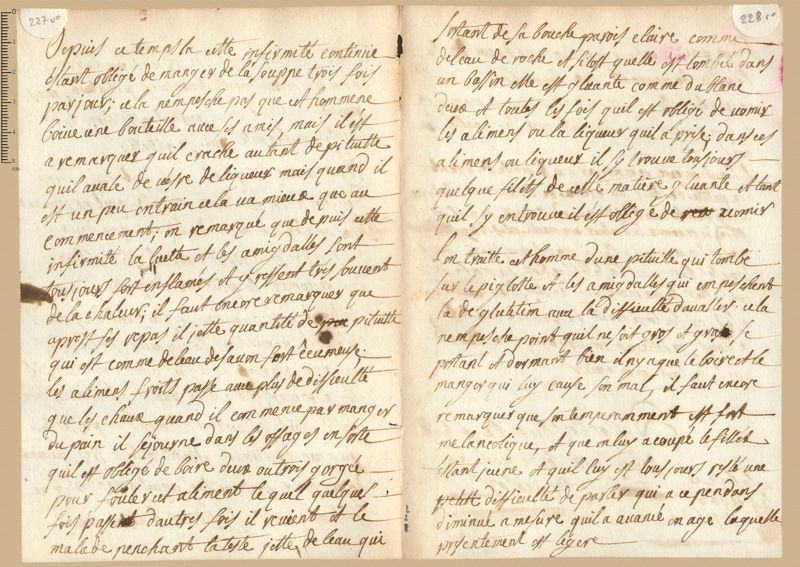 227 vo
Depuis ce temps la cette infirmité continüe
estant obligé de manger de la souppe trois fois
par jour; cela n'empesche pas que cet homme ne
boive une bouteille avec ses amis, mais il est
a remarquer quil crache autant de pituitte
quil avale de verre de liqueur mais quand il
est un peu entrain cela va mieux que au
commencement; on remarque que depuis cette
infirmité la luette et les amigdalles sont
tousjours fort enflamés et y ressent tres souvent
de la chaleur; il faut encore remarquer que
apres ses repas il jette quantité de pituitte
qui est comme de leau de savon fort ecumeuse
les alimens froits passe avec plus de difficulté
que les chaux quand il commence par manger
du pain il sejourne dans les ossages en sorte
quil est obligé de boire deux ou trois gorgée
pour couler cet aliment le quel quelques
fois passe dautres fois il revient et le
malade penchant la teste jette de leau qui
228 ro
sortant de sa bouche parois claire comme
de leau de roche et sitost quelle est tombé dans
un bassin elle est gluante comme du blanc
deux et toutes les fois quil est obligé de vomir
les alimens ou la liqueur quil a prise; dans ces
alimens ou liqueur il sy trouve tousjours
quelque filets de cette matiere gluante et tant
quil sy en trouve il est obligé de vomir
lon traitte cet homme dune pituitte qui tombe
sur le piglotte et les amigdalles qui empeschent
la deglutition avec la difficulté davaller. cela
nempesche point quil ne soit gros et gras se
portant et dormant bien il ny a que le boire et le
manger qui luy cause son mal, il faut encore
remarquer que son temperamment est fort
melancolique, et que on luy a coupé le fillet
estant jeune et quil luy est tousjours resté une
petite difficulté de parler qui a cependans
diminué a mesure quil a avancé en age laquelle
presentement est legere